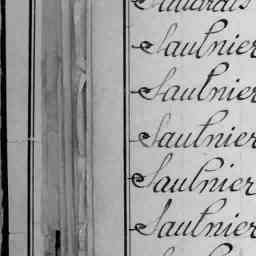 Saulnier
Saulnier
Saulnier
Saulnier
Saulnier